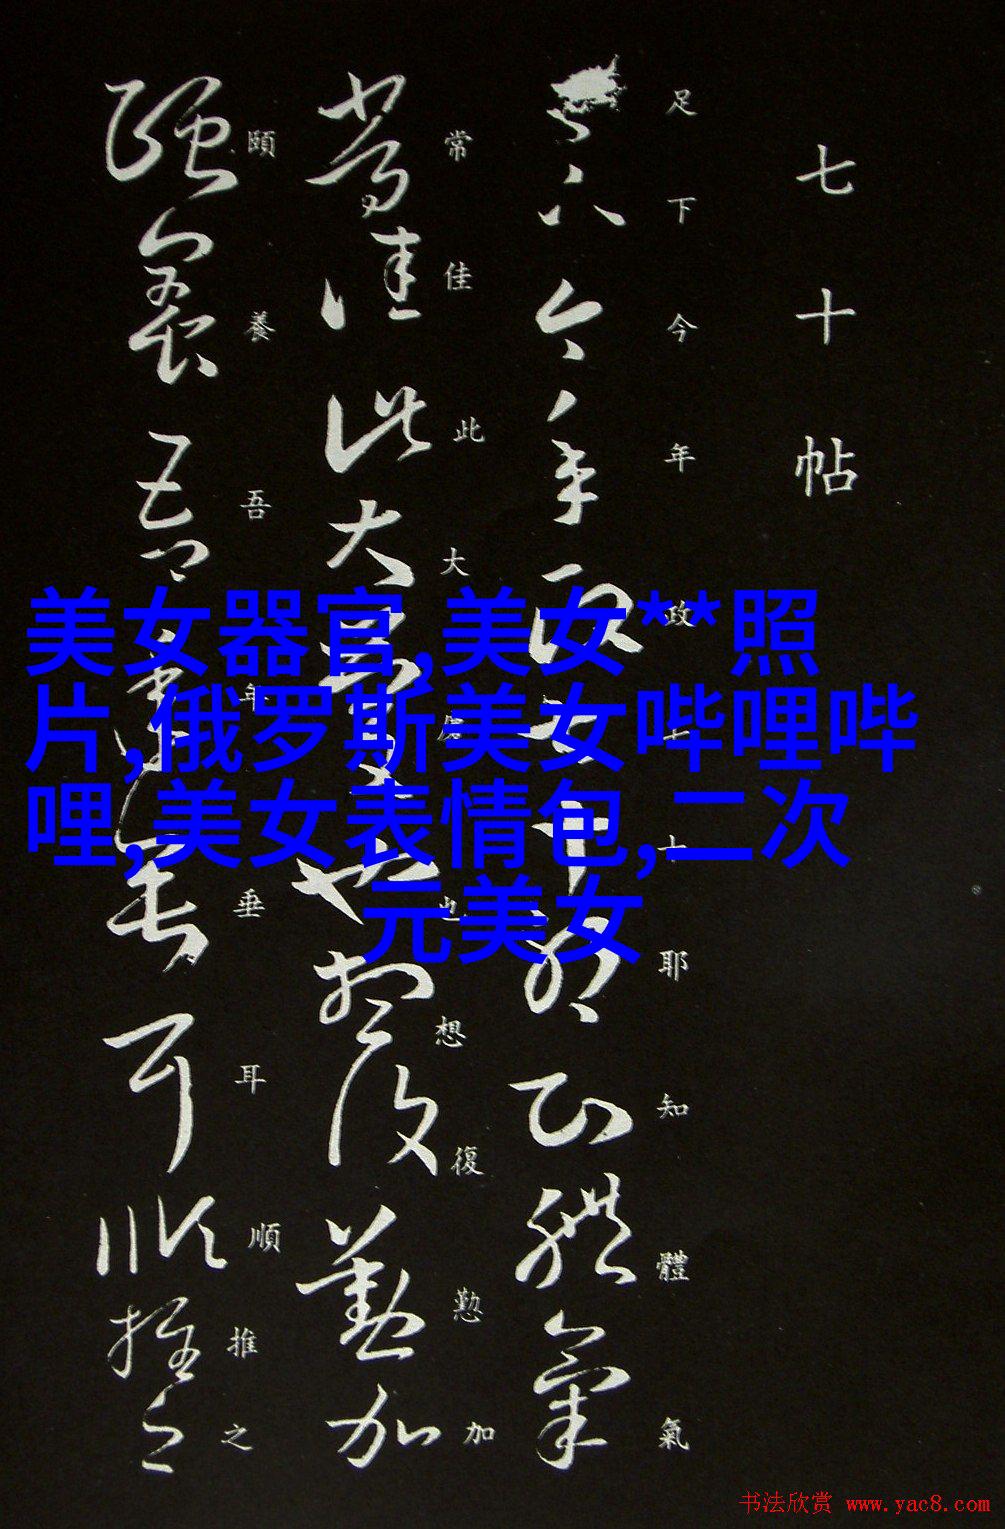 七十帖
足下今年政七十耶知體氣
常佳此大慶也想復懃加
頤養吾年垂耳順推之
美女器官,美女**照
片,俄罗斯美女哔哩哔
哩,美女表情包,二次
元美女
书法欣赏 www.yac8.com